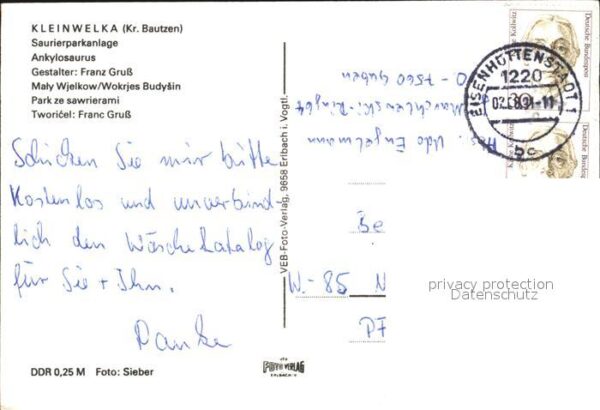 KLEINWELKA (Kr. Bautzen)
Saurierparkanlage
Ankylosaurus
Gestalter: Franz Gruß
Mały Wjelkow/Wokrjes Budyšin
Park ze sawrierami
Tworićel: Franc Gruß
Schicken Sie mir bitte
kostenlos und unverbind-
lich den Wäschekatalog
für Sie + Ihn.
Danke
DDR 0,25 M Foto: Sieber
VEB-Foto-Verlag, 9658 Erlbach i. Vogtl.
FOTO VERLAG
ERLBACH
Abs. Udo Engelmann
O - 7560 Guben
Be
W.-85 N
PF
Käthe Kollwitz
Deutsche Bundespost
Deutsche Bundespost
EISENHÜTTENSTADT 1
1220
bc
privacy protection
Datenschutz